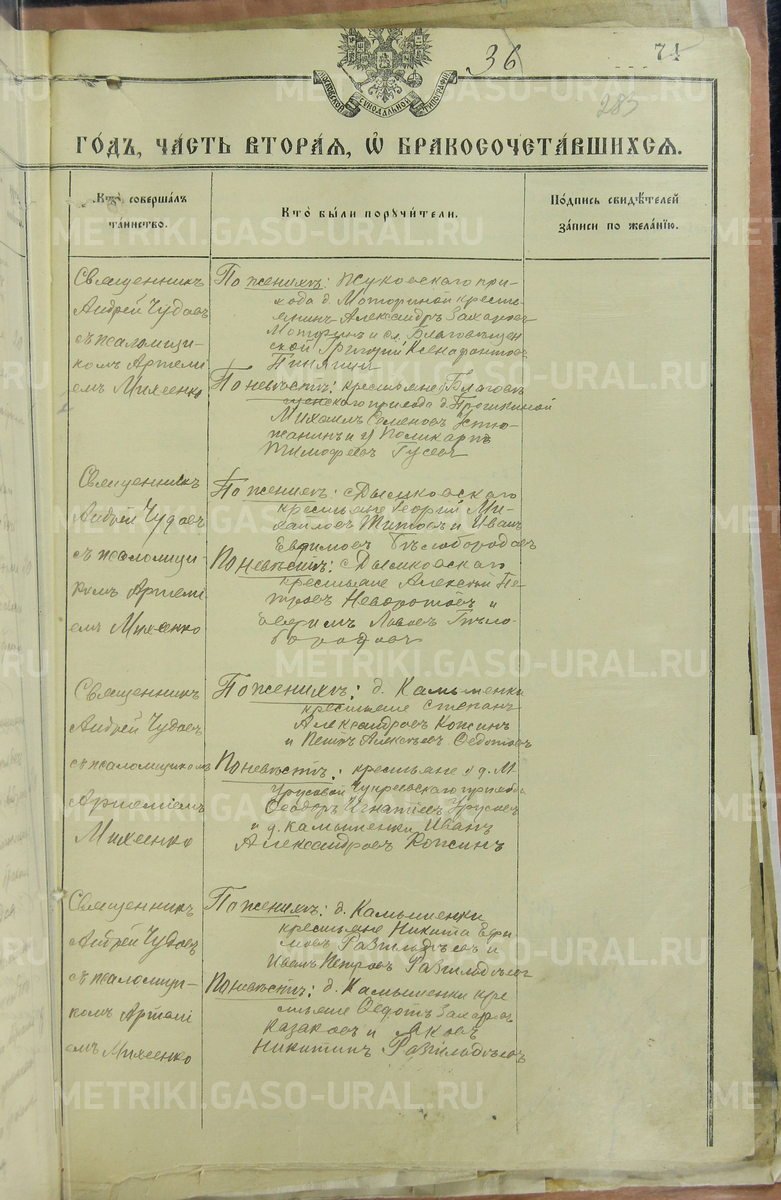 36
74
283
МОСКОВСКОЙ СѴНОДАЛЬНОЙ ТИПОГРАФІИ
ГОДЪ, ЧАСТЬ ВТОРАЯ, Ѡ БРАКОСОЧЕТАВШИХСЯ.
Кто совершалъ
таинство.
Кто были поручители.
Подпись свидѣтелей
записи по желанію.
Священникъ
Андрей Чудовъ
съ псаломщи-
комъ Артемі
емъ Михеенко
По женихѣ: Жуковскаго при-
хода д. Моториной крестья
янинъ Александръ Захаровъ
Моторинъ и с. Благовѣщен
ской Григорій Ксенофонтовъ
По невѣстѣ: крестьяне Благов
щенскаго прихода д. Трошкиной
Михаилъ Семеновъ Устю-
жанинъ и Поликарпъ
Тимофеевъ Гусевъ
Священникъ
Андрей Чудовъ
съ псаломщи-
комъ Артемі
емъ Михеенко
По женихѣ: с. Дымковскаго
крестьяне Георгій Ми-
хаиловъ Титовъ и Иванъ
Евфимовъ Бѣлобородовъ
По невѣстѣ: с. Дымковскаго
крестьяне Алексѣй Пе
тровъ Неворотовъ и
Ефимъ Бѣло
бородовъ
Священникъ
Андрей Чудовъ
съ псаломщикомъ
Артеміемъ
Михеенко
По женихѣ: д. Камышенки
крестьяне Степанъ
Александровъ Кожинъ
и Петръ Алексѣевъ Ѳедотовъ
По невѣстѣ: крестьяне д.
Урусовой Чукреевскаго прихода
Ѳеодоръ Игнатіевъ Урусовъ
и д. Камышенки Иванъ
Александровъ Кожинъ
Священникъ
Андрей Чудовъ
съ псаломщи-
комъ Артемі
емъ Михеенко
По женихѣ: д. Камышенки
крестьяне Никита Ефи
мовъ Разгильдѣевъ и
Иванъ Петровъ Разгильдѣевъ
По невѣстѣ: д. Камышенки кре
стьяне Ѳедотъ Захаровъ
Казаковъ и Яковъ
Никитинъ Разгильдѣевъ
METRIKI.GASO-URAL.RU